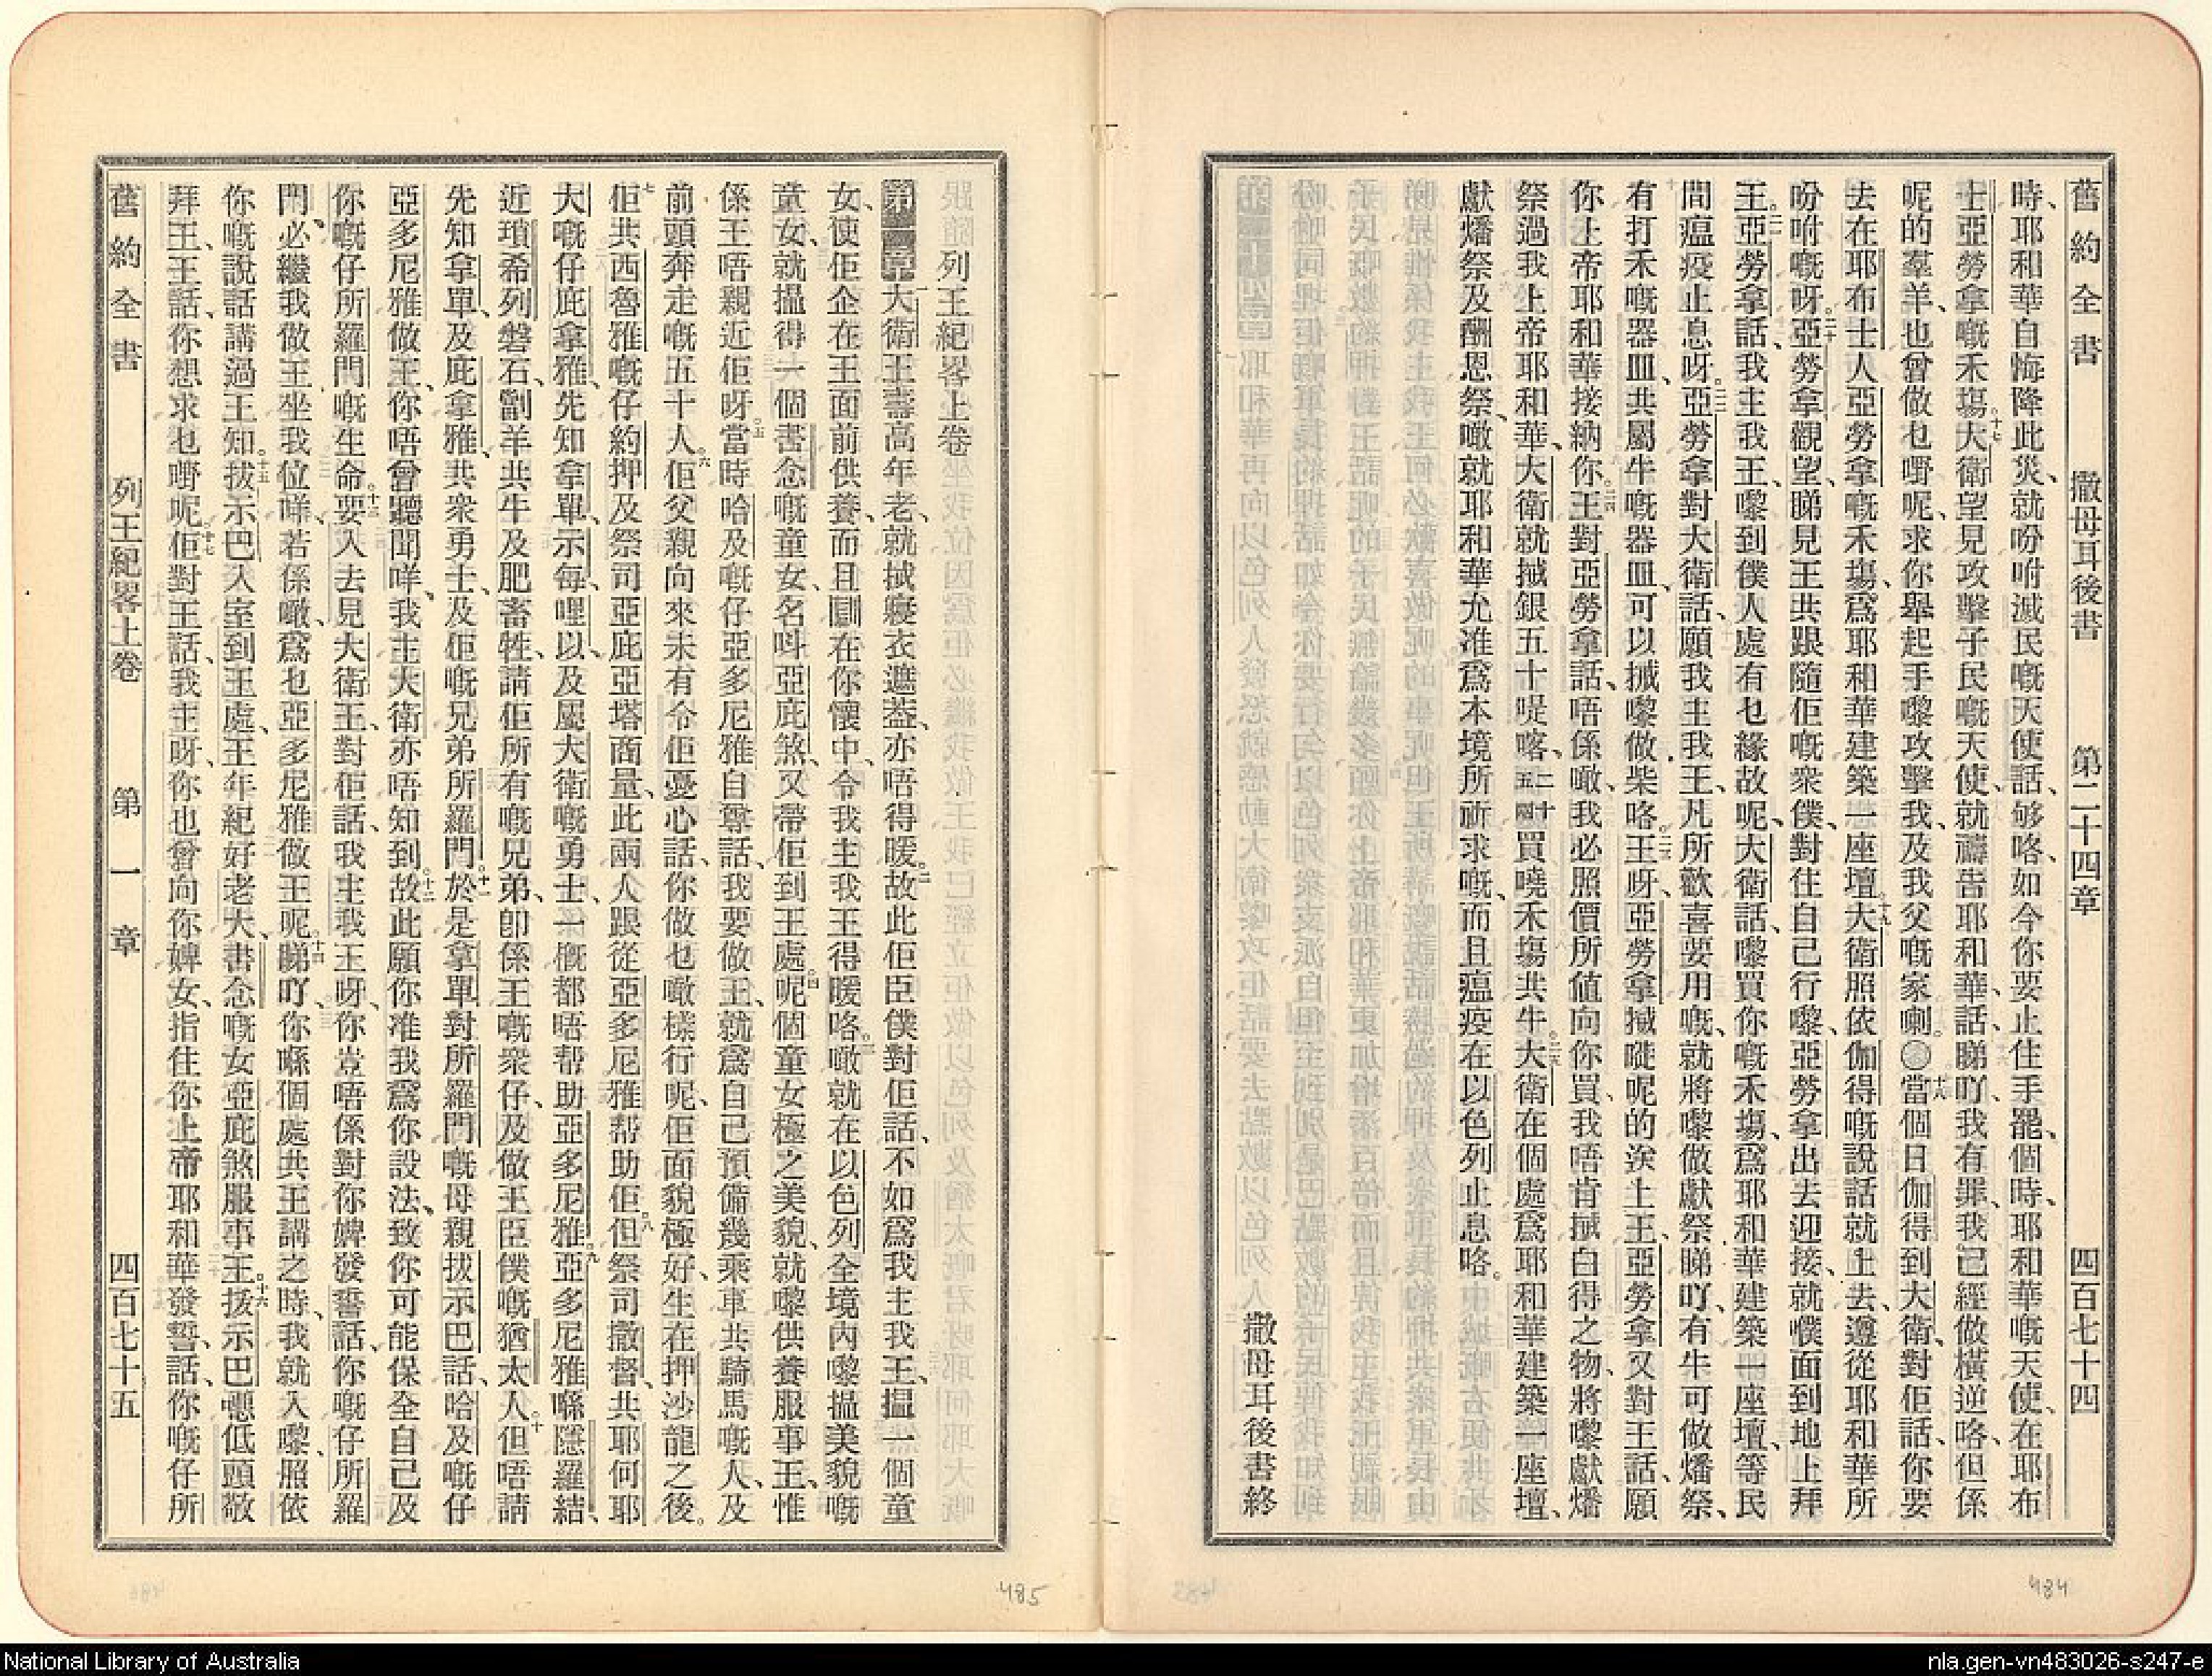 舊約全書 撒母耳後書 第二十四章 四百七十四
時、耶和華自悔降此災、就吩咐滅民嘅天使話、够咯、如今你要止住手罷、個時、耶和華嘅天使、在耶布
士亞勞拿嘅禾塲。十七大衛望見攻擊子民嘅天使、就禱告耶和華話、睇吖、我有罪、我已經做橫逆咯、但係
呢的羣羊、也曾做乜嘢呢、求你舉起手嚟攻擊我、及我父嘅家喇。○十八當個日伽得到大衛、對佢話、你要
去在耶布士人亞勞拿嘅禾塲、爲耶和華建築一座壇。十九大衛照依伽得嘅說話就上去、遵從耶和華所
吩咐嘅呀。二十亞勞拿觀望、睇見王共跟隨佢嘅衆僕、對住自己行嚟、亞勞拿出去迎接、就㒒面到地上拜
王。二一亞勞拿話、我主我王、嚟到僕人處有乜緣故呢、大衛話、嚟買你嘅禾塲、爲耶和華建築一座壇、等民
間瘟疫止息呀。二二亞勞拿對大衛話、願我主我王、凡所歡喜要用嘅、就將嚟做獻祭、睇吖、有牛可做燔祭、
有打禾嘅器皿、共屬牛嘅器皿、可以搣嚟做柴咯。二三王呀、亞勞拿搣嘥呢的俟土王、亞勞拿又對王話、願
你上帝耶和華接納你。二四王對亞勞拿話、唔係噉、我必照價所値向你買、我唔肯搣白得之物、將嚟獻燔
祭過我上帝耶和華、大衛就搣銀五十㖷喀、二十五圓買曉禾塲共牛。二五大衛在個處爲耶和華建築一座壇、
獻燔祭及酬恩祭、噉就耶和華允准爲本境所祈求嘅、而且瘟疫在以色列止息咯。
撒母耳後書終
列王紀畧上卷
第一章一大衛王壽高年老、就搣寢衣遮葢、亦唔得暖。二故此佢臣僕對佢話、不如爲我主我王、搵一個童
女、使佢企在王面前供養、而且瞓在你懷中、令我主我王得暖咯。三噉就在以色列全境內嚟搵美貌嘅
童女、就搵得一個書念嘅童女、名呌亞庇煞、又帶佢到王處。四呢個童女極之美貌、就嚟供養服事王、惟
係王唔親近佢呀。五當時哈及嘅仔亞多尼雅自尊話、我要做王、就爲自己預備幾乘車共騎馬嘅人、及
前頭奔走嘅五十人。六佢父親向來未有令佢憂心話、你做乜噉樣行呢、佢面貌極好、生在押沙龍之後。
七佢共西魯雅嘅仔約押及祭司亞庇亞塔商量、此兩人跟從亞多尼雅幇助佢。八但祭司撒督、共耶何耶
大嘅仔庇拿雅、先知拿單、示每、哩以及屬大衛嘅勇士、一槪都唔幇助亞多尼雅。九亞多尼雅喺隱羅結、
近瑣希列磐石、劏羊共牛及肥畜牲、請佢所有嘅兄弟、卽係王嘅衆仔、及做王臣僕嘅猶太人。十但唔請
先知拿單、及庇拿雅、共衆勇士、及佢嘅兄弟所羅門。十一於是拿單對所羅門嘅母親拔示巴話、哈及嘅仔
亞多尼雅做王、你唔曾聽聞咩、我主大衛亦唔知到。十二故此願你准我爲你設法、致你可能保全自己及
你嘅仔所羅門嘅生命。十三要入去見大衛王、對佢話、我主我王呀、你豈唔係對你婢發誓話、你嘅仔所羅
門、必繼我做王坐我位咩、若係噉、爲乜亞多尼雅做王呢。十四睇吖、你喺個處共王講之時、我就入嚟、照依
你嘅說話講過王知。十五拔示巴入室到王處、王年紀好老大、書念嘅女亞庇煞服事王。十六拔示巴嚫低頭敬
拜王、王話、你想求乜嘢呢。十七佢對王話、我主呀、你也曾向你婢女、指住你上帝耶和華發誓話、你嘅仔所
舊約全書 列王紀畧上卷 第一章 四百七十五
484
485
National Library of Australia
nla.gen-vn483026-s247-e